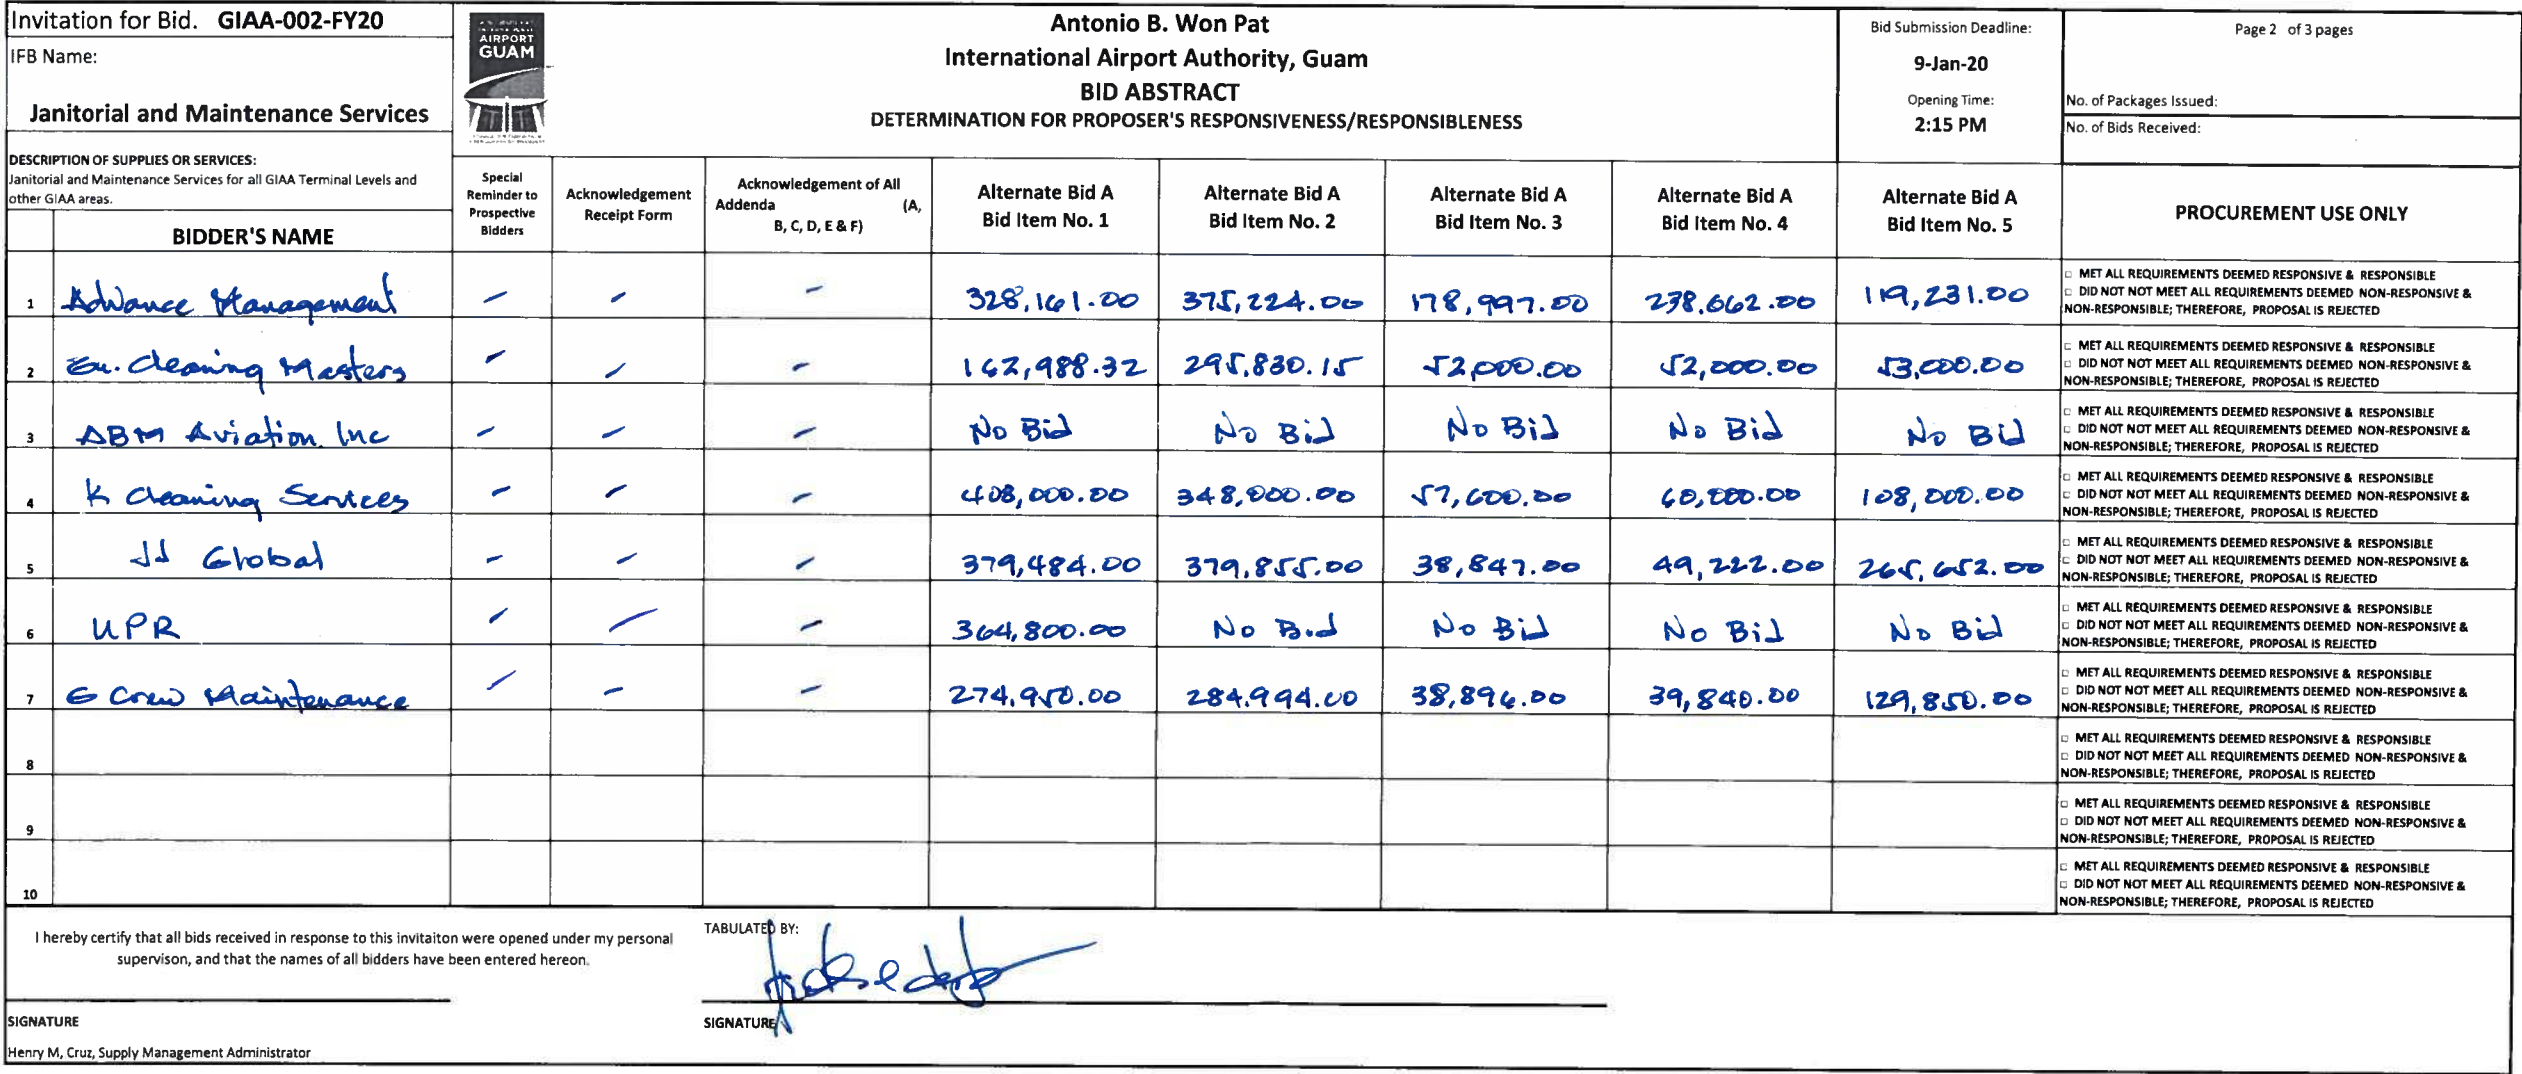 Invitation for Bid. GIAA-002-FY20
IFB Name:
Janitorial and Maintenance Services
AIRPORT
GUAM
Antonio B. Won Pat
International Airport Authority, Guam
BID ABSTRACT
DETERMINATION FOR PROPOSER'S RESPONSIVENESS/RESPONSIBLENESS
Bid Submission Deadline:
9-Jan-20
Opening Time:
2:15 PM
Page 2 of 3 pages
No. of Packages Issued:
No. of Bids Received:
DESCRIPTION OF SUPPLIES OR SERVICES:
Janitorial and Maintenance Services for all GIAA Terminal Levels and
other GIAA areas.
BIDDER'S NAME
Special
Reminder to
Prospective
Bidders
Acknowledgement
Receipt Form
Acknowledgement of All
Addenda (A,
B, C, D, E & F)
Alternate Bid A
Bid Item No. 1
Alternate Bid A
Bid Item No. 2
Alternate Bid A
Bid Item No. 3
Alternate Bid A
Bid Item No. 4
Alternate Bid A
Bid Item No. 5
PROCUREMENT USE ONLY
1 Advance Management 328,161.00 375,224.00 178,997.00 238,662.00 119,231.00
MET ALL REQUIREMENTS DEEMED RESPONSIVE & RESPONSIBLE
DID NOT NOT MEET ALL REQUIREMENTS DEEMED NON-RESPONSIVE &
NON-RESPONSIBLE; THEREFORE, PROPOSAL IS REJECTED
2 Cleaning Masters 162,988.32 295,830.15 52,000.00 52,000.00 53,000.00
MET ALL REQUIREMENTS DEEMED RESPONSIVE & RESPONSIBLE
DID NOT NOT MEET ALL REQUIREMENTS DEEMED NON-RESPONSIVE &
NON-RESPONSIBLE; THEREFORE, PROPOSAL IS REJECTED
3 ABM Aviation, Inc No Bid No Bid No Bid No Bid No Bid
MET ALL REQUIREMENTS DEEMED RESPONSIVE & RESPONSIBLE
DID NOT NOT MEET ALL REQUIREMENTS DEEMED NON-RESPONSIVE &
NON-RESPONSIBLE; THEREFORE, PROPOSAL IS REJECTED
4 K Cleaning Services 408,000.00 348,000.00 57,600.00 60,000.00 108,000.00
MET ALL REQUIREMENTS DEEMED RESPONSIVE & RESPONSIBLE
DID NOT NOT MEET ALL REQUIREMENTS DEEMED NON-RESPONSIVE &
NON-RESPONSIBLE; THEREFORE, PROPOSAL IS REJECTED
5 JJ Global 379,484.00 379,855.00 38,847.00 49,222.00 265,652.00
MET ALL REQUIREMENTS DEEMED RESPONSIVE & RESPONSIBLE
DID NOT NOT MEET ALL REQUIREMENTS DEEMED NON-RESPONSIVE &
NON-RESPONSIBLE; THEREFORE, PROPOSAL IS REJECTED
6 UPR 364,800.00 No Bid No Bid No Bid No Bid
MET ALL REQUIREMENTS DEEMED RESPONSIVE & RESPONSIBLE
DID NOT NOT MEET ALL REQUIREMENTS DEEMED NON-RESPONSIVE &
NON-RESPONSIBLE; THEREFORE, PROPOSAL IS REJECTED
7 G Crew Maintenance 274,950.00 284,994.00 38,896.00 39,840.00 129,850.00
MET ALL REQUIREMENTS DEEMED RESPONSIVE & RESPONSIBLE
DID NOT NOT MEET ALL REQUIREMENTS DEEMED NON-RESPONSIVE &
NON-RESPONSIBLE; THEREFORE, PROPOSAL IS REJECTED
8
MET ALL REQUIREMENTS DEEMED RESPONSIVE & RESPONSIBLE
DID NOT NOT MEET ALL REQUIREMENTS DEEMED NON-RESPONSIVE &
NON-RESPONSIBLE; THEREFORE, PROPOSAL IS REJECTED
9
MET ALL REQUIREMENTS DEEMED RESPONSIVE & RESPONSIBLE
DID NOT NOT MEET ALL REQUIREMENTS DEEMED NON-RESPONSIVE &
NON-RESPONSIBLE; THEREFORE, PROPOSAL IS REJECTED
10
MET ALL REQUIREMENTS DEEMED RESPONSIVE & RESPONSIBLE
DID NOT NOT MEET ALL REQUIREMENTS DEEMED NON-RESPONSIVE &
NON-RESPONSIBLE; THEREFORE, PROPOSAL IS REJECTED
I hereby certify that all bids received in response to this invitaiton were opened under my personal
supervison, and that the names of all bidders have been entered hereon.
SIGNATURE
Henry M, Cruz, Supply Management Administrator
TABULATED BY:
SIGNATURE